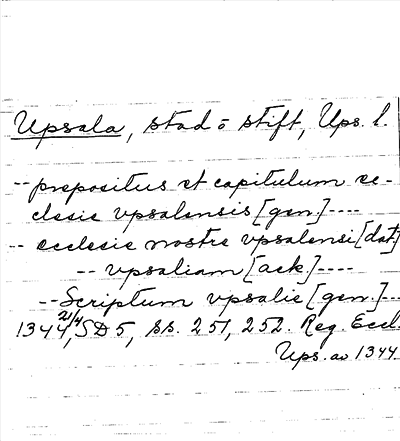 Upsala, stad o stift, Ups. l.
-- prepositus et capitulum ec-
clesie vpsalensis [gen.] ----
-- ecclesie nostre vpsalensi [dat]
-- vpsaliam [ack.] ----
-- Scriptum vpsalie [gen.] ---
1344 21/4, SD 5, ss. 251, 252. Reg. Eccl.
Ups. av 1344.